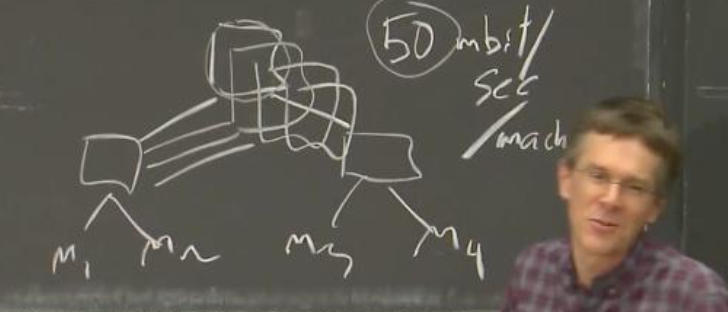 50 mbit/
sec
/mach
M1 M2 M3 M4